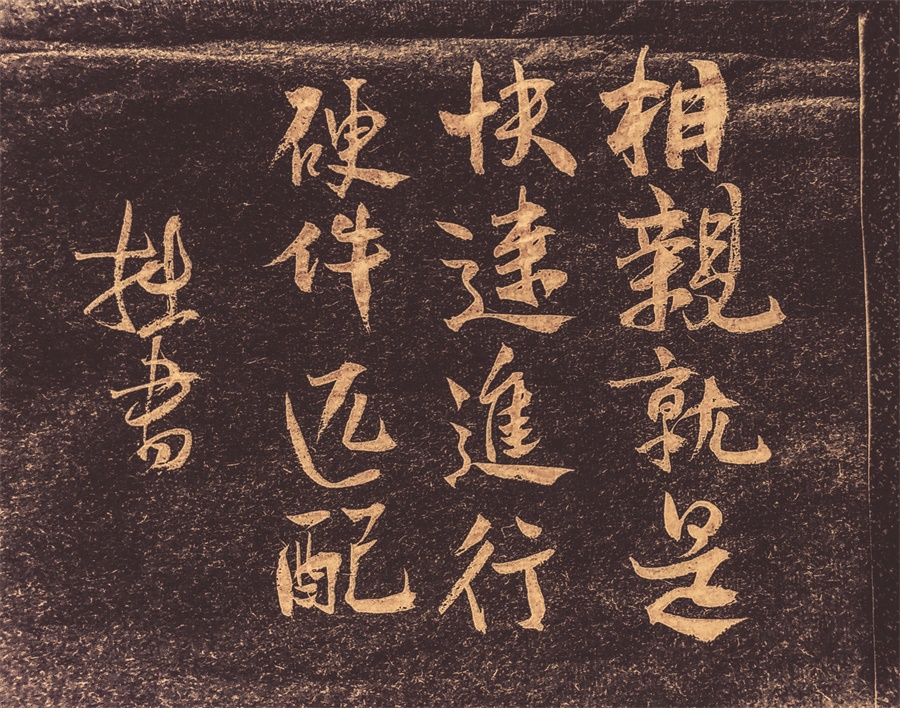 相親就是
快速進行
硬件匹配
拙書